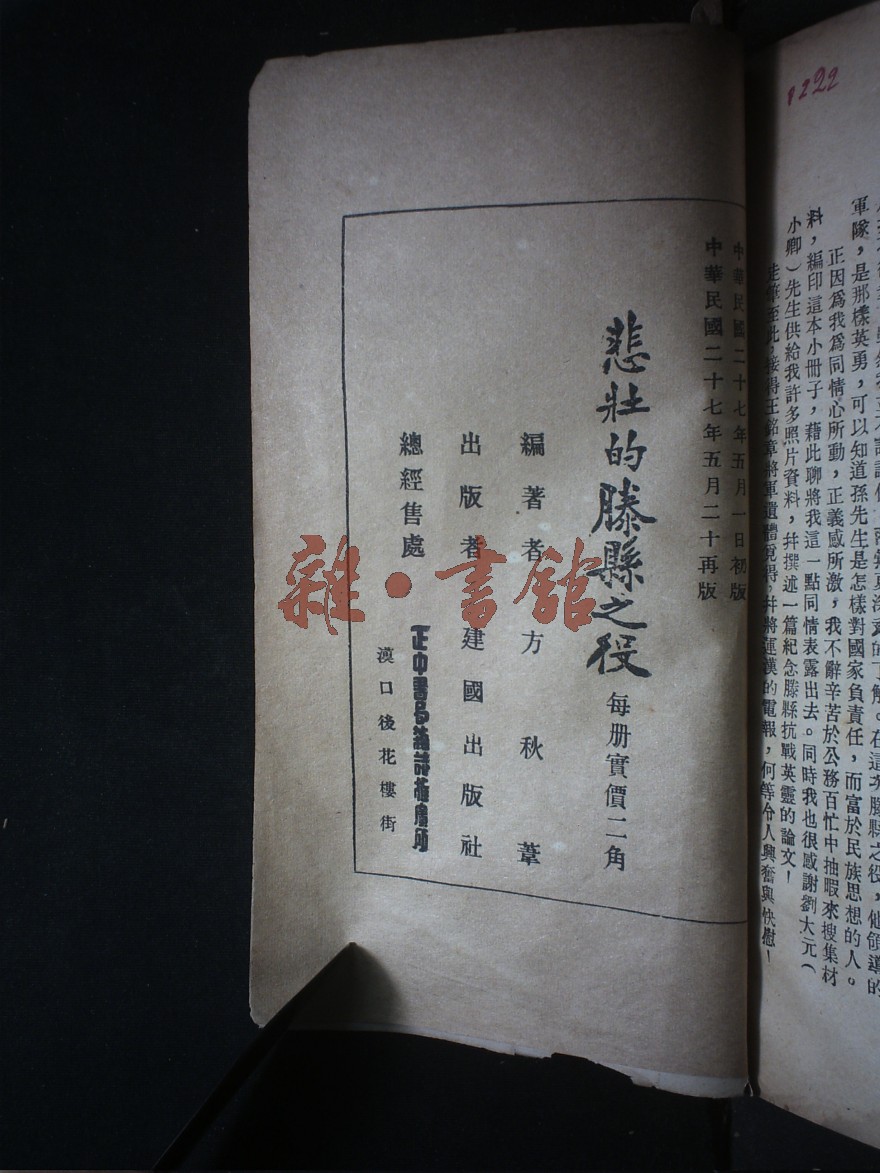 1222
軍隊，是那樣英勇，可以知道孫先生是怎樣對國家負責任，而富於民族思想的人。
正因爲我爲同情心所動，正義感所激，我不辭辛苦於公務百忙中抽暇來搜集材
料，編印這本小冊子，藉此聊將我這一點同情表露出去。同時我也很感謝劉大元（
小卿）先生供給我許多照片資料，幷撰述一篇紀念滕縣抗戰英靈的論文！
走筆至此，接得王銘章將軍遺體覓得，幷將運漢的電報，何等令人興奮與快慰！
中華民國二十七年五月一日初版
中華民國二十七年五月二十再版
悲壯的滕縣之役 每册實價二角
編著者 方秋葦
出版者 建國出版社
總經售處 正中書局
漢口後花樓街
雜·書館